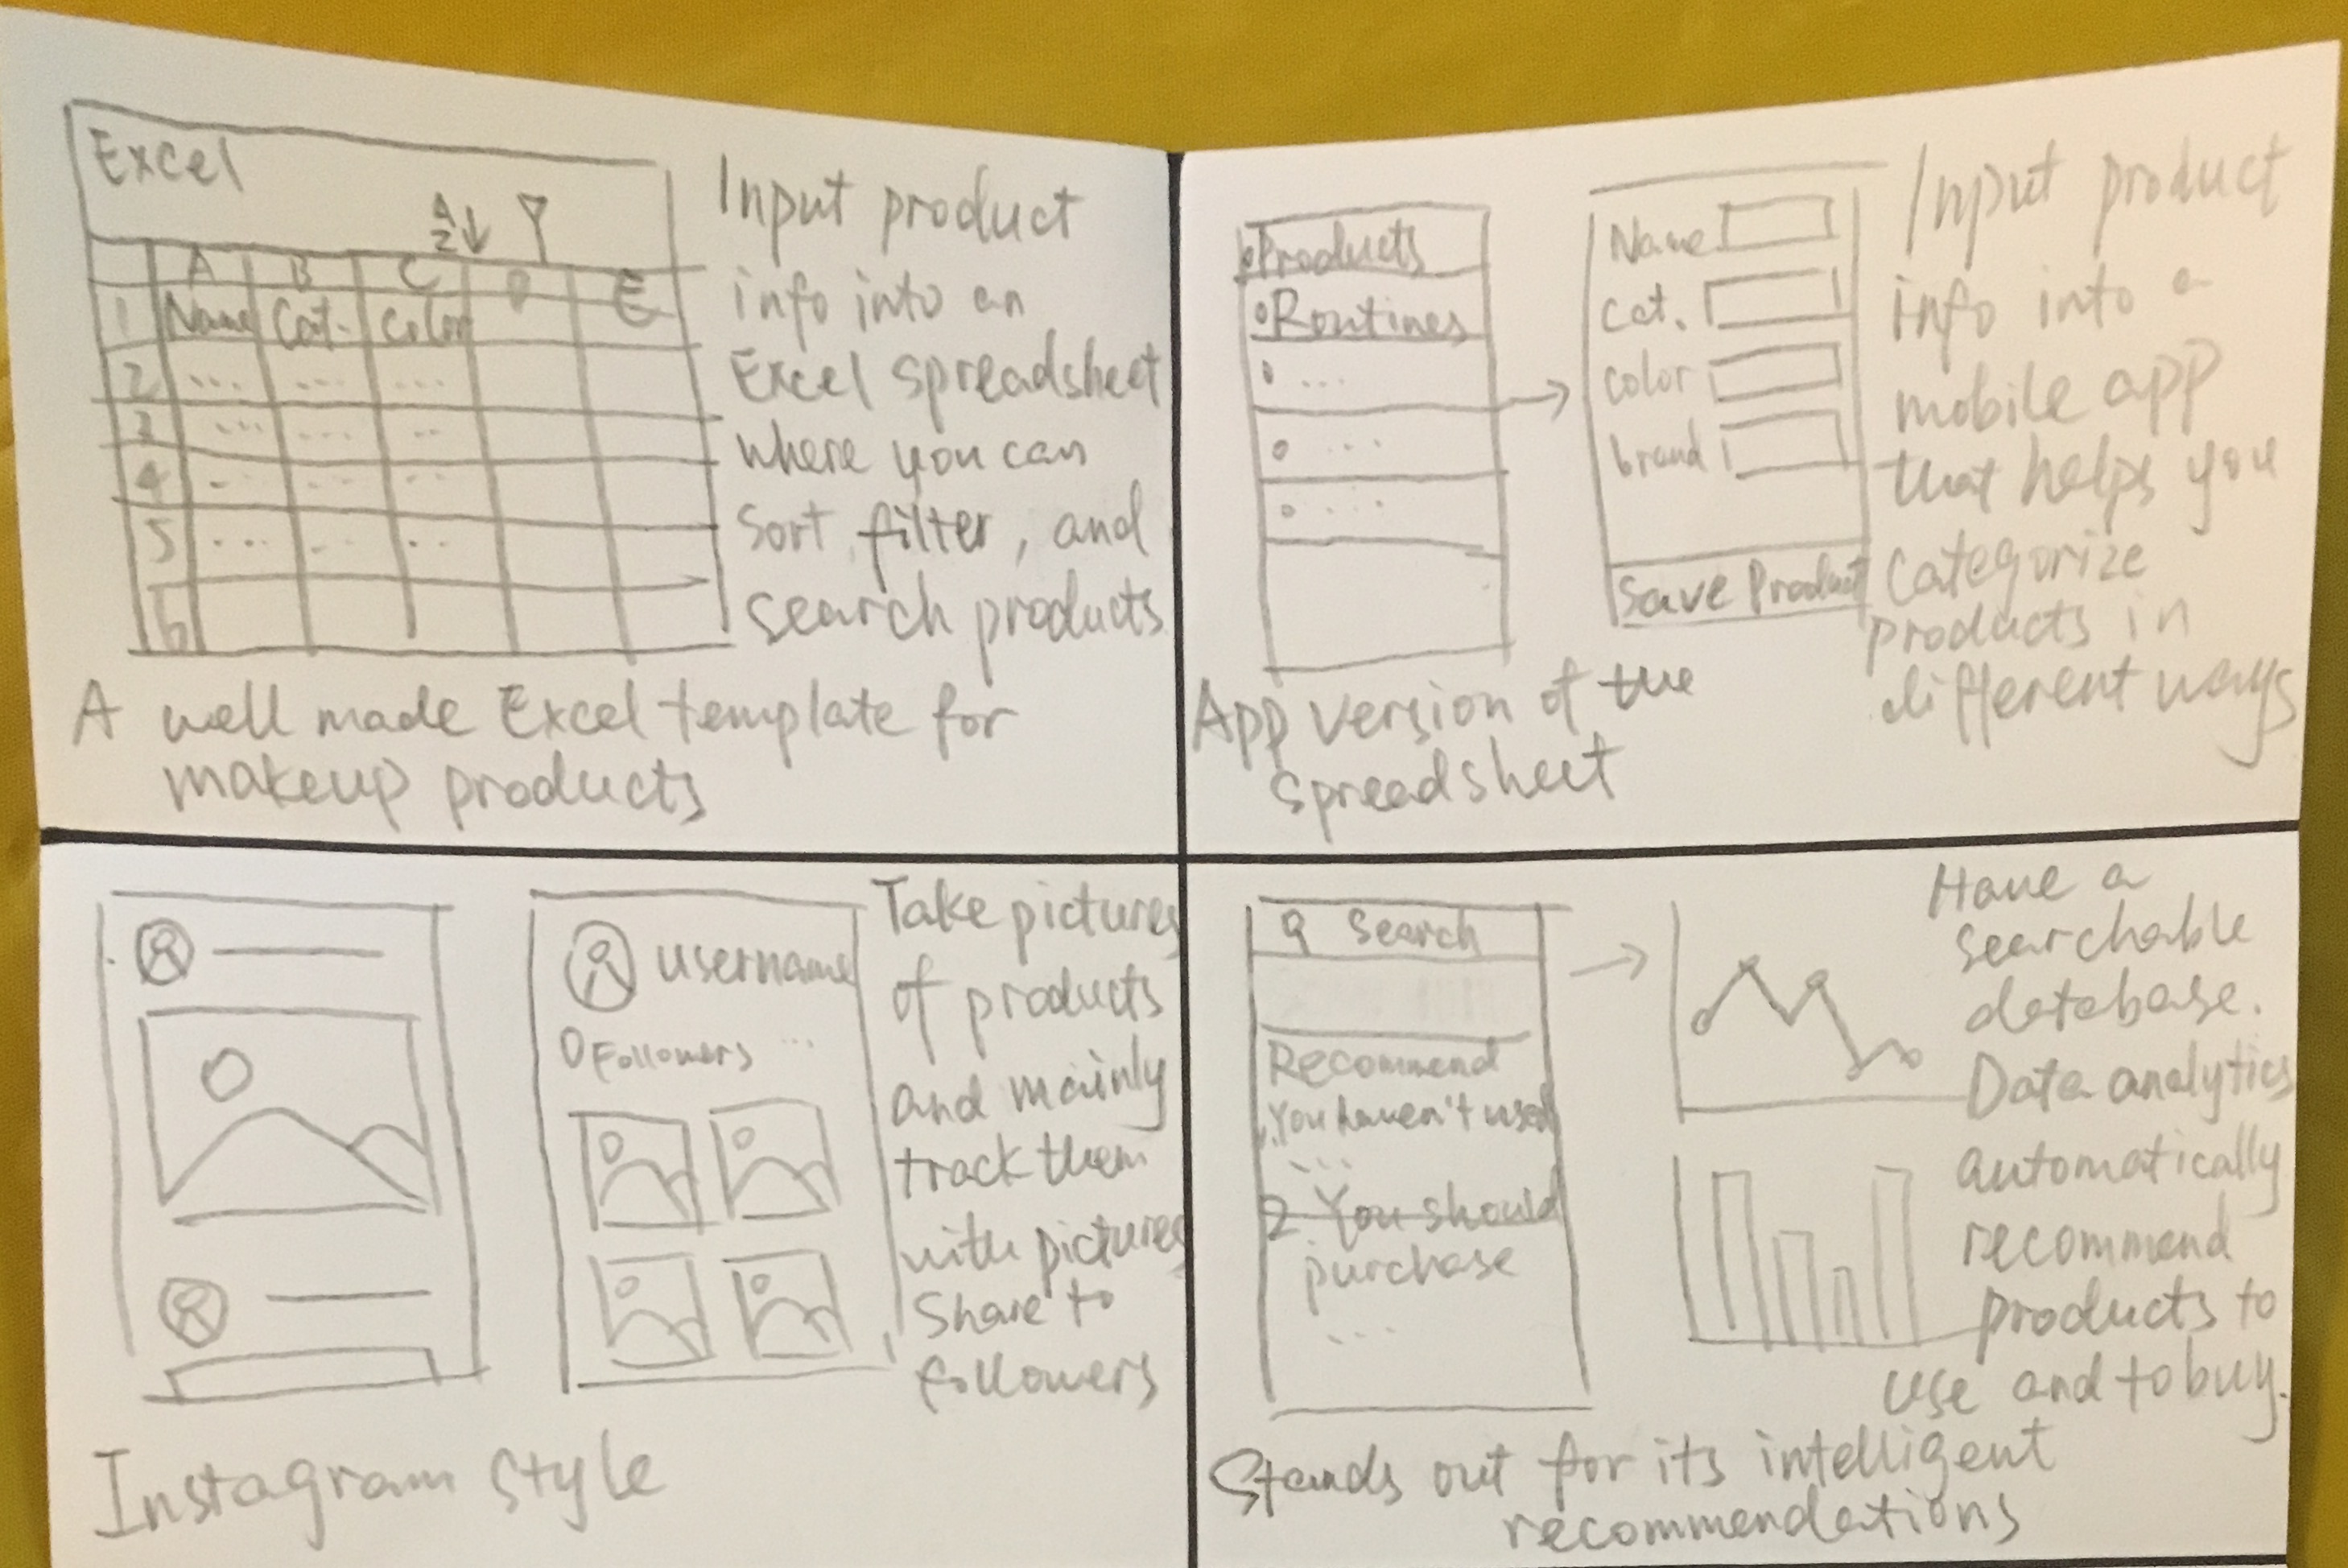 Excel
A
Z
A B C D E
1 Name Cat. Color
2 ... ... ...
3 ... ... ..
4 ... ... ...
5 ... ... ...
6
Input product
info into an
Excel spreadsheet
where you can
sort, filter, and
search products
A well made Excel template for
makeup products
Products
Routines
...
...
...
Name
Cat.
color
brand
Save Product
Input product
info into a
mobile app
that helps you
categorize
products in
different ways
App version of the
spreadsheet
username
0 Followers ...
Take pictures
of products
and mainly
track them
with pictures
Share to
followers
Instagram style
Search
Recommend
1. You haven't used
...
2. You should
purchase
...
Have a
searchable
database.
Data analytics
automatically
recommend
products to
use and to buy.
Stands out for its intelligent
recommendations